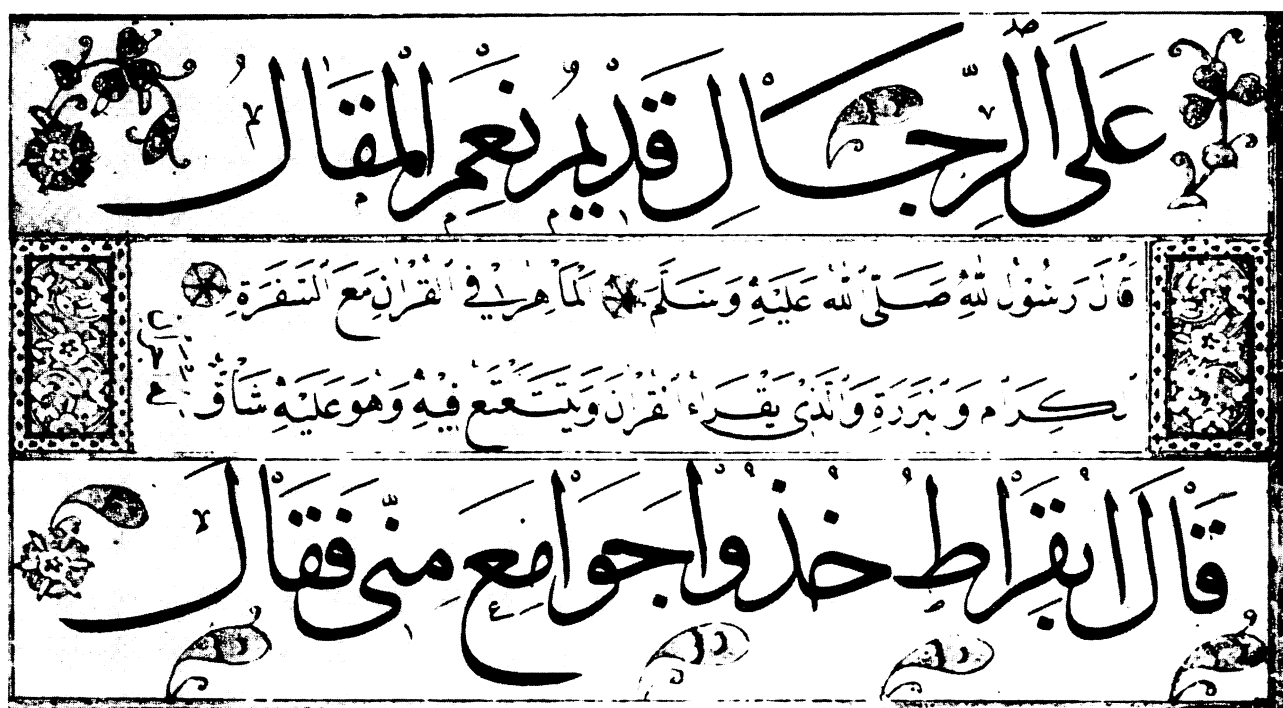 عَلَى الرِّجَالِ قَدِيمٌ نِعْمَ الْمَقَالُ
قَالَ رَسُولُ اللّٰهِ صَلَّى اللّٰهُ عَلَيْهِ وَسَلَّمَ الْمَاهِرُ فِي الْقُرْاٰنِ مَعَ السَّفَرَةِ
الْكِرَامِ وَالْبَرَرَةِ وَالَّذِي يَقْرَاُ الْقُرْاٰنَ وَيَتَتَعْتَعُ فِيهِ وَهُوَ عَلَيْهِ شَاقٌّ
قَالَ ابُقْرَاطُ خُذُوا جَوَامَعَ مِنِّي فَقَالَ